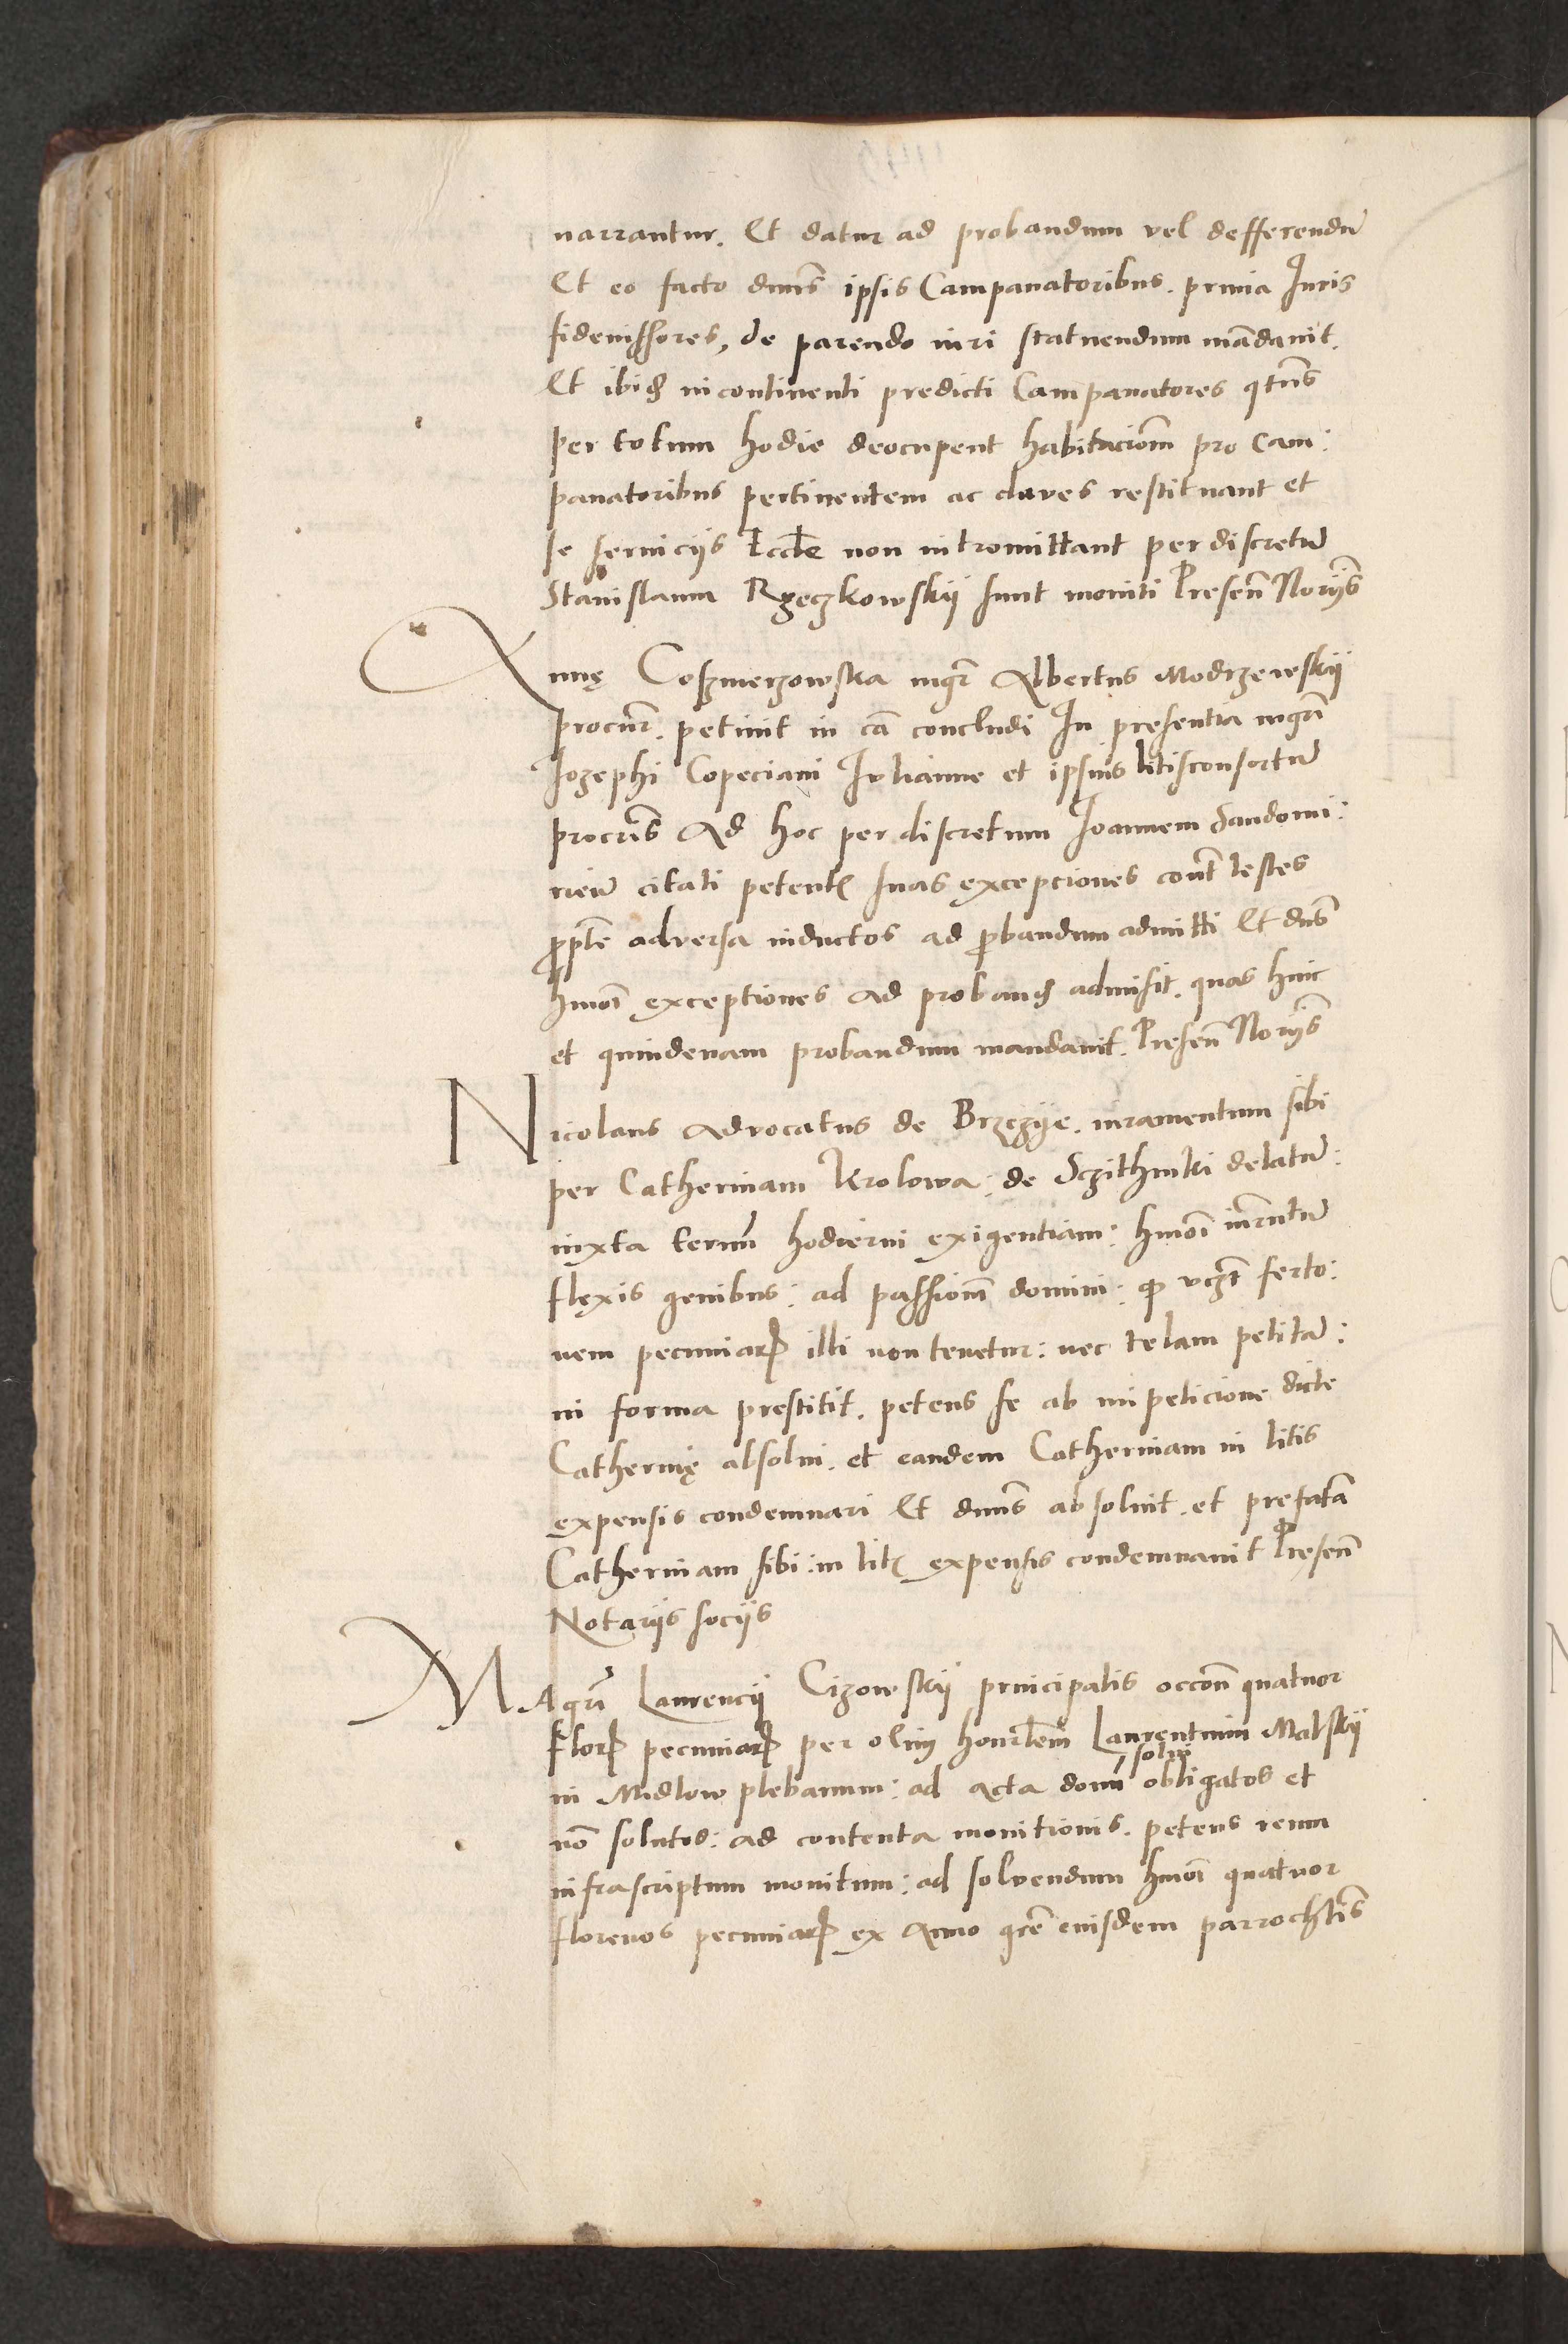 narrantur. Et datur ad probandum vel defferendū
Et eo facto dmn̄s ipsis Campanatoribus. prima Iuris
fideiussores, de parendo iuri statuendum mādauit.
Et ibid incontinenti predicti Campanatores qtn̄s
per totum hodie deocupent habitaciom̄ pro Cam:
panatoribus pertinentem ac claves restituant et
se seruiciis Eccłe non intromittant per discretū
Stanislaum Rzeczkowskij sunt moniti Presen̄ Norijs
Annę Coszmerzowska mgr̄ Albertus Modrzewskij
procur̄. petiuit in cā concludi In presentia mgrī
Iozephi Copeciani Iulianne et ipsius litisconsortū
procrīs Ad hoc per discretum Ioannem Sandomi:
rien̄ citati petent suas excepciones cont̄ testes
p pte adversa inductos ad pbandum admitti Et dn̄s
hmoī exceptiones ad proband admisit. quas hinc
et quindenam probandum mandauit. Presen̄ Norijs
Nicolaus Advocatus de Brzezije. iuramentum sibi
per Catherinam Krolowa: de Sczithniki delatū:
iuxta termī hodierni exigentiam: hmoī iurm̄tū
flexis genibus: ad passiom̄ domini: q vnt̄ ferto:
nem pecuniar illi non tenetur: nec telam petitā:
in forma prestitit. petens se ab impeticione dicte
Catherinę absolui. et eandem Catherinam in litis
expensis condemnari Et dmn̄s absoluit. et prefatā
Catherinam sibi in lit expensis condemnauit Presen̄
Notarijs socijs
MAgrī Laurencij Cizowskij principalis occon̄ quatuor
flor pecuniar per olim honrłem Laurentium Malskij
in Midlow plebanum: ad acta domī solui obligatos et
nō solutos: ad contenta monitionis. petens venm
infrascriptum monitum: ad solvendum hmoī quatuor
florenos pecuniar ex Anno grē eiusdem parrochłis